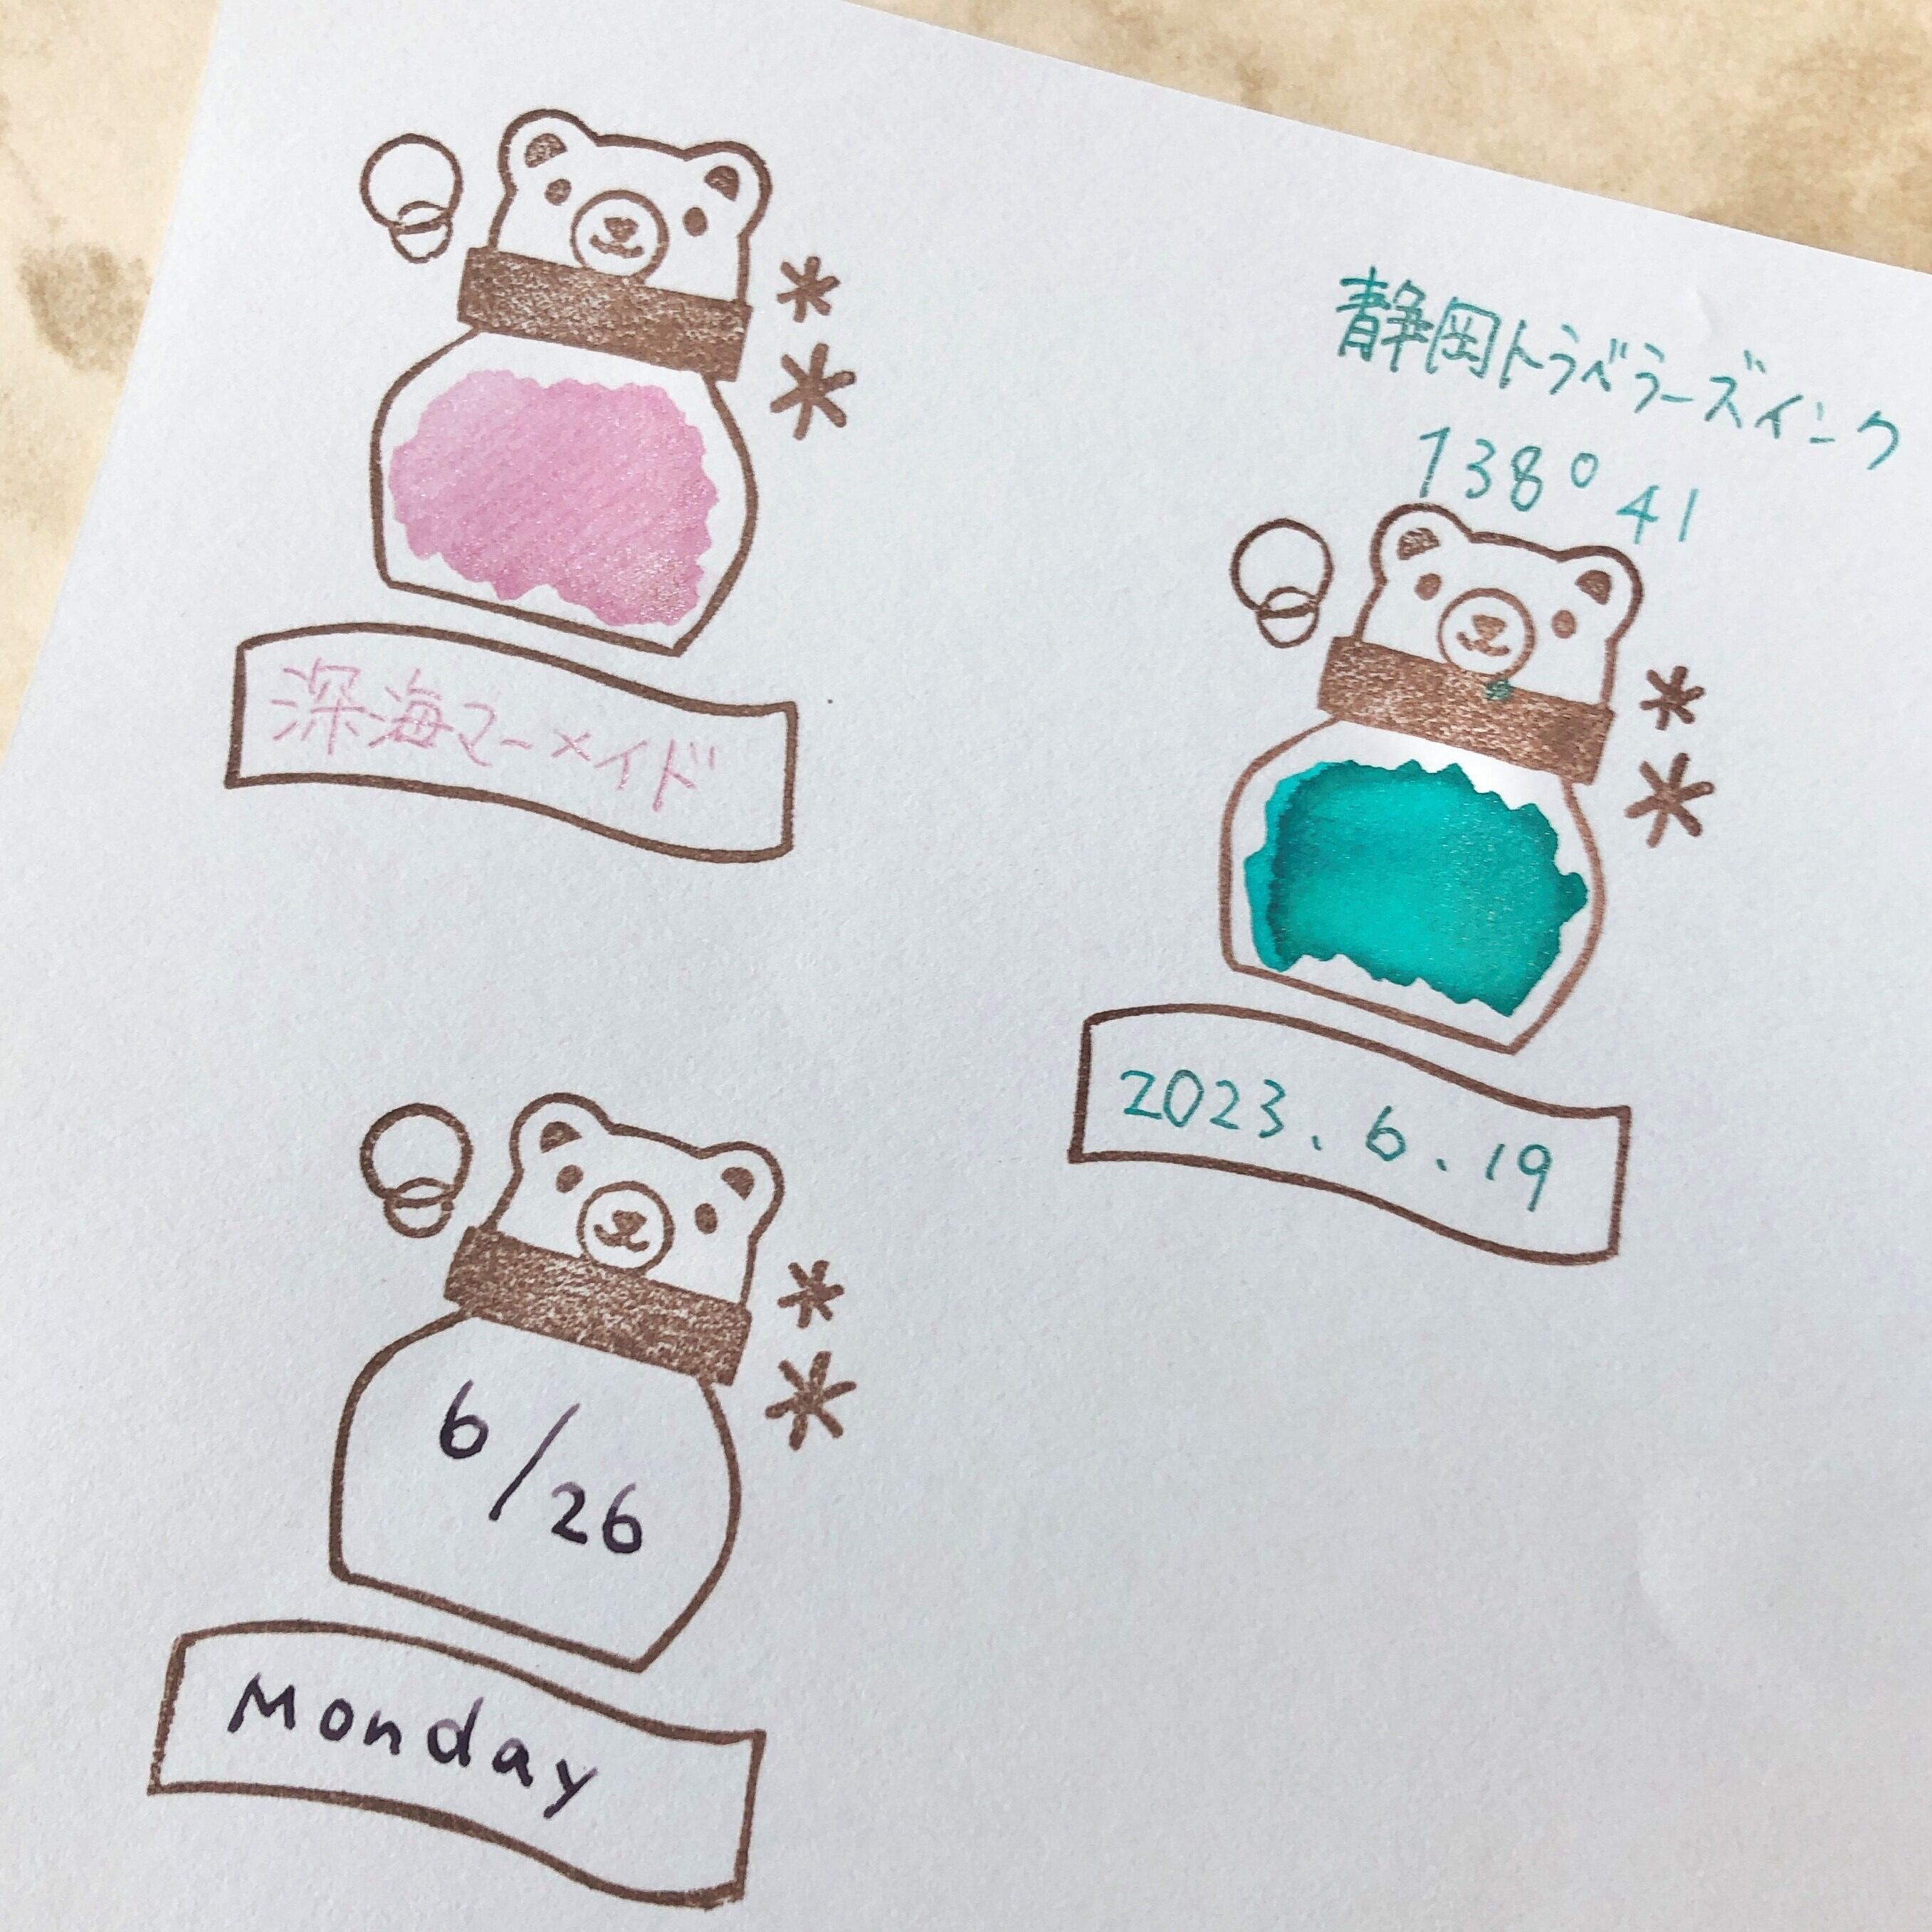 深海マーメイド
静岡トラベラーズインク
138°41
2023.6.19
6/26
Monday